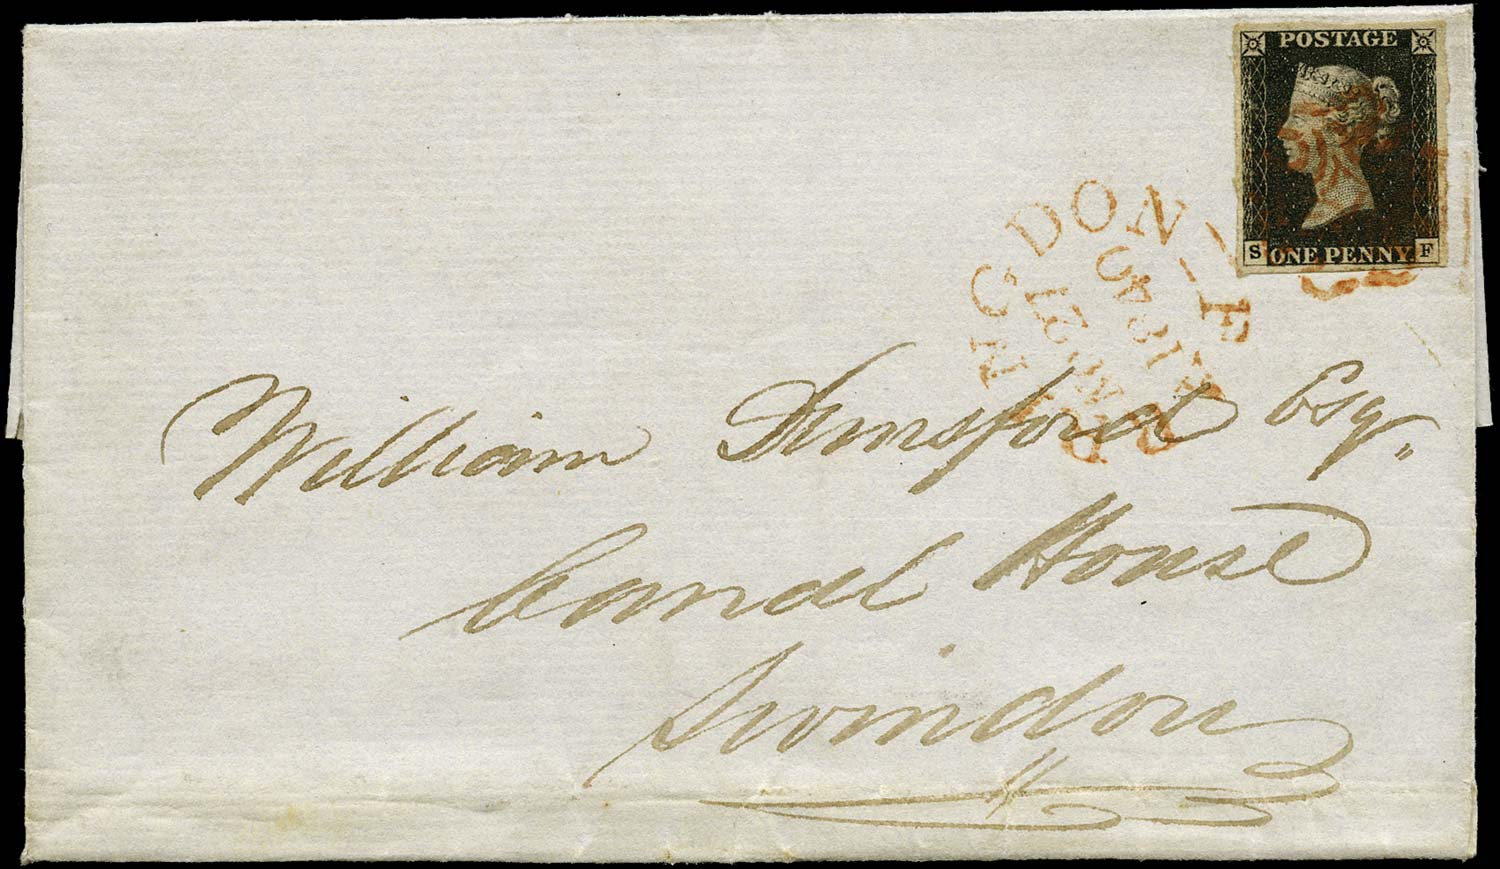 POSTAGE
S ONE PENNY F
FARINGDON
OC 21
1840
William Dunsford Esqr.
Canal House
Swindon